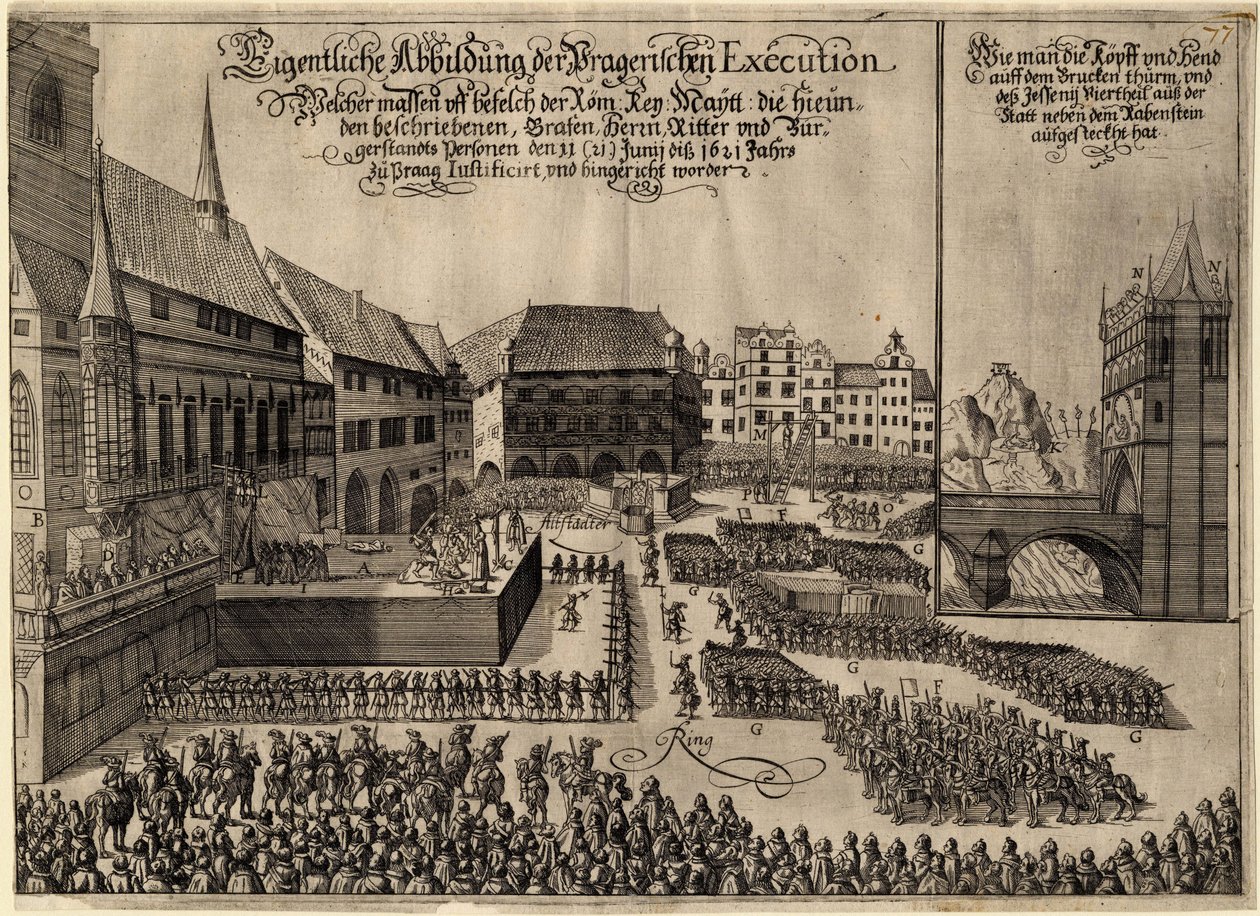 Eigentliche Abbildung der Pragerischen Execution
Welcher massen vff befelch der Röm: Key: Maÿtt: die hieun„
den beschriebenen, Grafen, Herrn, Ritter vnd Bür„
gerstandts Personen den 11 (21) Junij diß 1621 Jahrs
zů Praag Iustificirt, vnd hingericht worden.
77
Wie man die Köpff vnd Hend
auff dem Brucken thurm, vnd
deß Jessenij Viertheil auß der
Statt neben dem Rabenstein
auffgesteckht hat.
N N
K
M
P F O
B
L
Altstädter
C
G
D
A
I H C
G
G
F
G
G
Ring